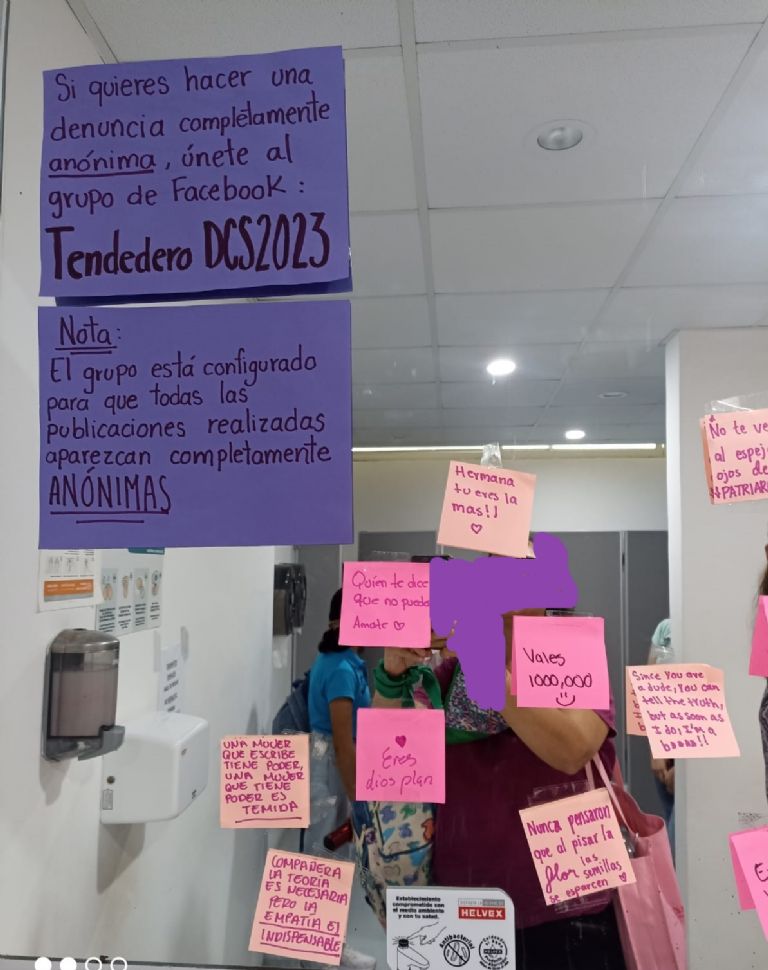 Si quieres hacer una
denuncia completamente
anónima, únete al
grupo de Facebook:
Tendedero DCS2023
Nota:
El grupo está configurado
para que todas las
publicaciones realizadas
aparezcan completamente
ANÓNIMAS
Hermana
tu eres la
mas!!
No te ve
al espej
ojos de
#PATRIAR
Quien te dice
que no puede
Amate
Vales
1000,000
Since You are
a dude, You can
tell the truth,
but as soon as
I do, I'm a
Eres
dios plan
UNA MUJER
QUE ESCRIBE
TIENE PODER,
UNA MUJER
QUE TIENE
PODER ES
TEMIDA
Nunca pensaron
que al pisar la
flor las
semillas
se esparcen
COMPAÑERA
LA TEORÍA
ES NECESARIA
PERO LA
EMPATIA ES
INDISPENSABLE
Establecimiento
comprometido con
el medio ambiente
y con tu salud.
HELVEX
Antibacterial